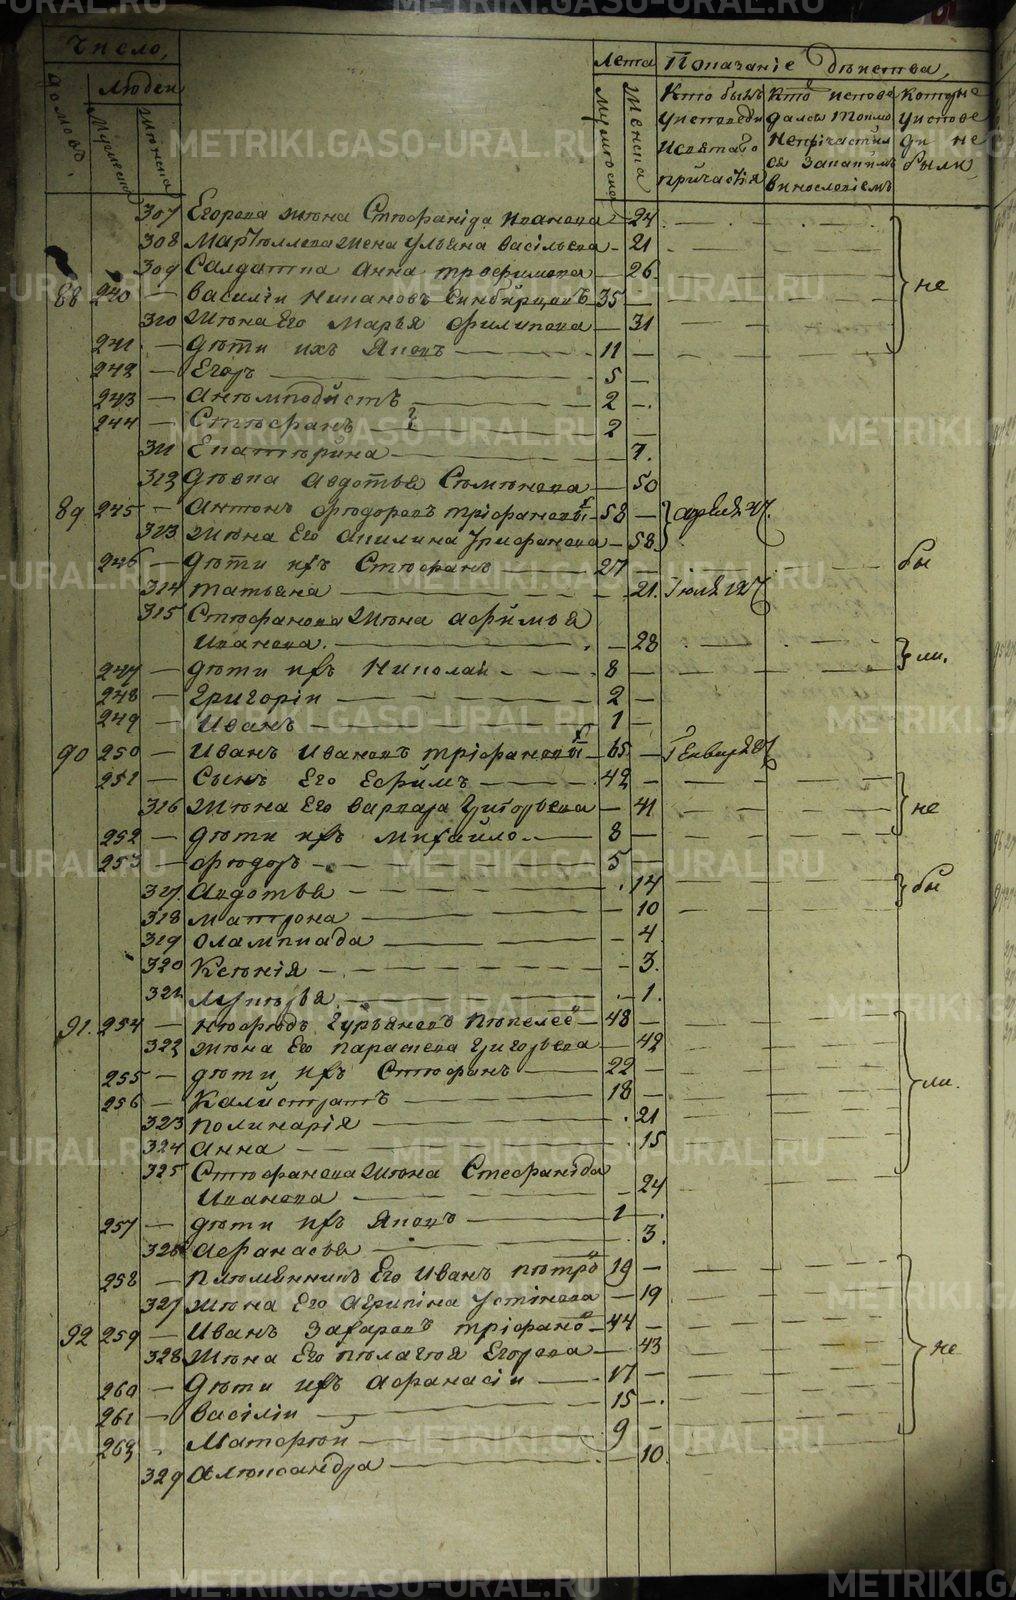 Число,
Лета
Показаніе дѣиства,
домовъ,
людеи
Мужеска
Женска
Мужеска
Женска
Кто былъ у исповеди и святаго причастія
Кто исповедался токмо непричастился
Которые у исповеди не были
307 Егорова жена Стефанида Иванова — 24
308 жена Ульяна Васільева — 21
309 Салдатка Анна Трофимова — 26
не
88 240 — Василіи Никановъ — 35 —
310 Жена Его Марья Филипова — 31
241 — дети ихъ Яковъ — 11 —
242 — Егоръ — 5 —
243 — — 2 —
244 — Стефанъ — 2 —
311 Екатерина — 7.
312 Девка Авдотья Семенова — 50
89 245 — Антонъ Федоровъ — 58 —
313 Жена Его Акилина — 58
246 — дети ихъ Стефанъ — 27 —
бы
314 Татьяна — 21. Іюля 12
315 Стефанова Жена Афимья
Иванова. — 28
ли.
247 — дети ихъ Николаи — 8 —
248 — Григоріи — 2 —
249 — Иванъ — 1 —
90 250 — Иванъ Ивановъ — 65 —
251 — Сынъ Его Ефимъ — 42 —
316 Жена Его Варвара Григорьева — 41
не
252 — дети ихъ Михайло — 8 —
253 — Федоръ — 5 —
317. Авдотья — 14
бы
318 Матрона — 10
319 Олампиада — 4.
320 Ксенія — 3.
321 Лукерья — 1.
91. 254 — Нефедъ Гурьяновъ — 48 —
322 Жена Его Параскева Григорьева — 42
255 — дети ихъ Стефанъ — 22 —
ли.
256 — Калистратъ — 18 —
323 Полинарія — 21
324 Анна — 15
325 Стефанова Жена Стефанида
Иванова — 24
257 — дети ихъ Яковъ — 1 —
326 Афанасья — 3.
258 — Племянникъ Его Иванъ Петро — 19 —
327 Жена Его Агрипина Устинова — 19
92 259 — Иванъ Захаровъ — 44 —
328 Жена Его Пелагея Егорова — 43
не
260 — Дети ихъ Афанасіи — 17 —
261 — Васіліи — 15 —
262 Маторюй — 9 —
329 Александра — 10
METRIKI.GASO-URAL.RU